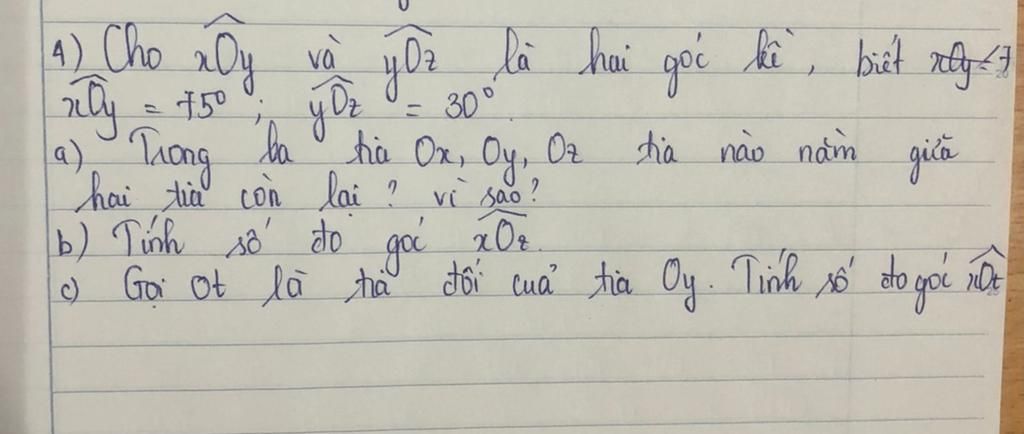 4) Cho xOy và yOz là hai góc kề, biết
xOy = 75°; yOz = 30°.
a) Trong ba tia Ox, Oy, Oz tia nào nằm giữa
hai tia còn lại? vì sao?
b) Tính số đo góc xOz.
c) Gọi Ot là tia đối cuả tia Oy. Tính số đo góc xOt